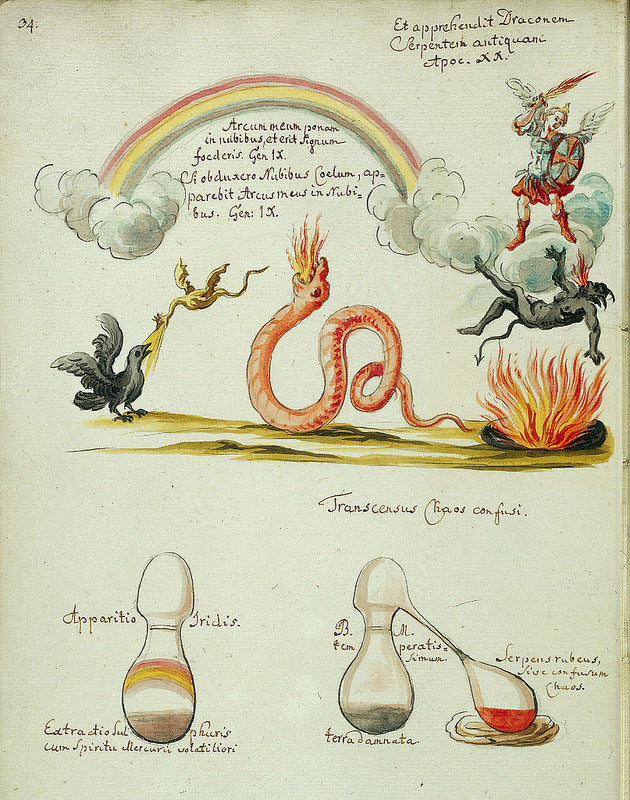 34.
Et apprehendit Draconem
Serpentem antiquam
Apoc. XX.
Arcum meum ponam
in nubibus, et erit signum
foederis. Gen IX.
Si obduxero Nubibus Coelum, ap=
parebit Arcus meus in Nubi=
bus. Gen: IX.
Transcensus Chaos confusi.
Apparitio Iridis.
Extractio Sulphuris
cum Spiritu Mercurii volatiliori
B. M.
temperatis=
simum.
terra damnata.
Serpens rubeus,
sive confusum
Chaos.